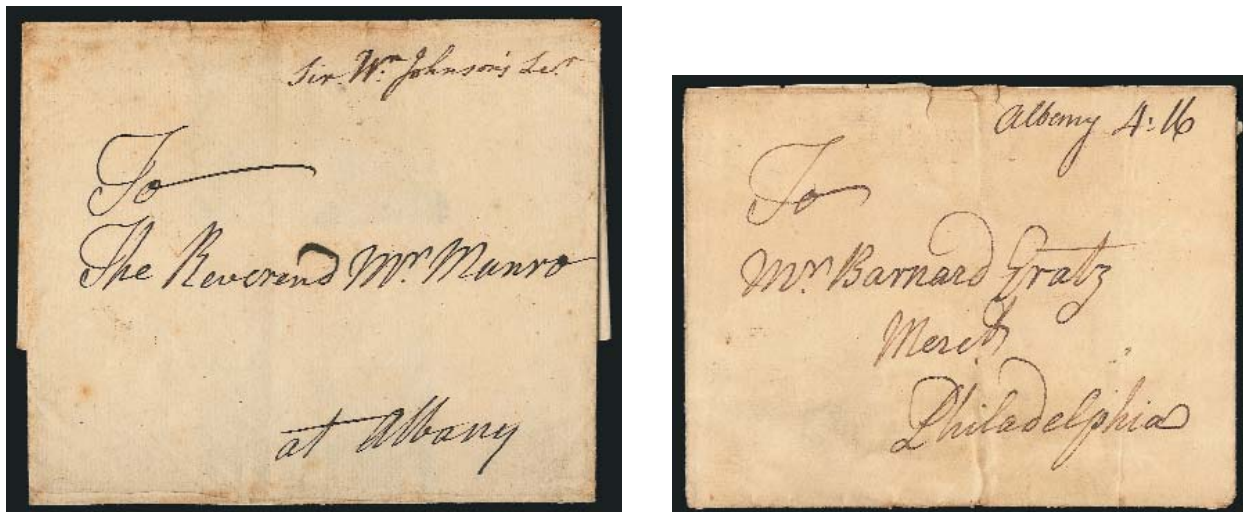 Sir Wm. Johnson's Ler.
To
The Reverend Mr. Munro
at Albany
Albany 4:16
To
Mr. Barnard Gratz
Merch
Philadelphia